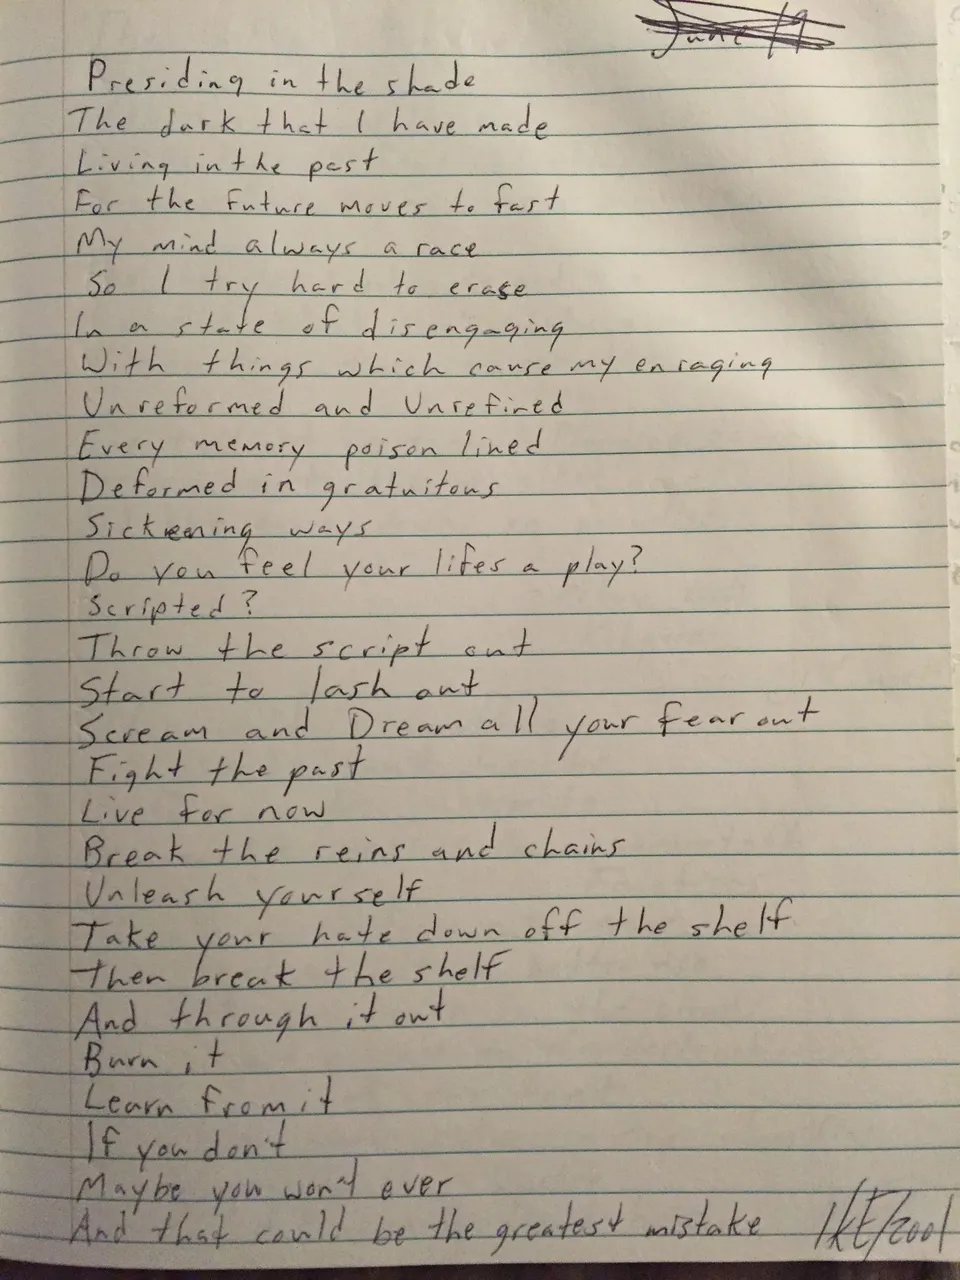 June 19
Presiding in the shade
The dark that I have made
Living in the past
For the future moves to fast
My mind always a race
So I try hard to erase
In a state of disengaging
With things which cause my enraging
Unreformed and Unrefined
Every memory poison lined
Deformed in gratuitous
Sickening ways
Do you feel your lifes a play?
Scripted?
Throw the script out
Start to lash out
Scream and Dream all your fear out
Fight the past
Live for now
Break the reins and chains
Unleash yourself
Take your hate down off the shelf
Then break the shelf
And through it out
Burn it
Learn from it
If you don't
Maybe you won't ever
And that could be the greatest mistake